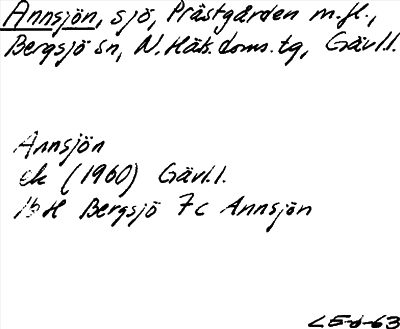 Annsjön, sjö, Prästgården m.fl.,
Bergsjö sn, N. Häls. doms. tg, Gävl.l.
Annsjön
ek (1960) Gävl.l.
16H Bergsjö 7c Annsjön